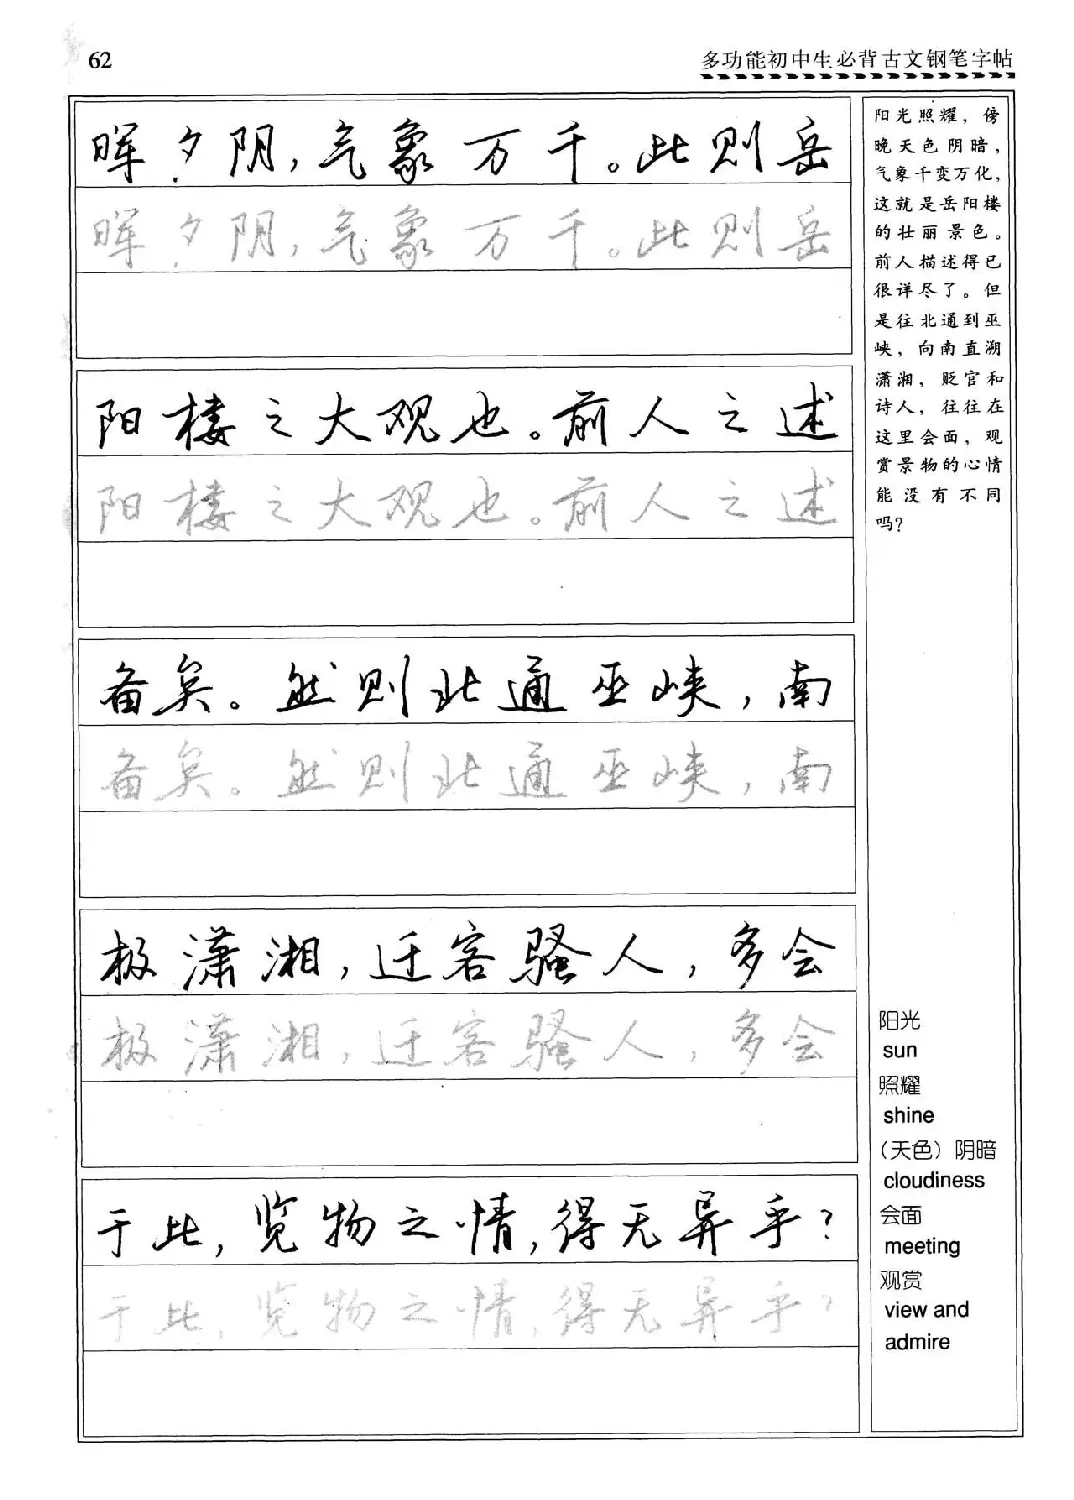 62
多功能初中生必背古文钢笔字帖
晖夕阴,气象万千。此则岳
晖夕阴,气象万千。此则岳
阳楼之大观也。前人之述
阳楼之大观也。前人之述
备矣。然则北通巫峡,南
备矣。然则北通巫峡,南
极潇湘,迁客骚人,多会
极潇湘,迁客骚人,多会
于此,览物之情,得无异乎?
于此,览物之情,得无异乎?
阳光照耀，傍
晚天色阴暗，
气象千变万化，
这就是岳阳楼
的壮丽景色。
前人描述得已
很详尽了。但
是往北通到巫
峡，向南直溯
潇湘，贬官和
诗人，往往在
这里会面，观
赏景物的心情
能没有不同
吗？
阳光
sun
照耀
shine
(天色)阴暗
cloudiness
会面
meeting
观赏
view and
admire